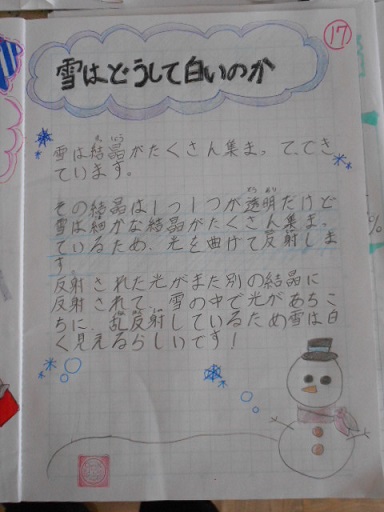 17
雪はどうして白いのか
雪は結晶がたくさん集まってでき
ています。
その結晶は1つ1つが透明だけど
雪は細かな結晶がたくさん集まっ
ているため、光を曲げて反射しま
す。
反射された光がまた別の結晶に
反射されて、雪の中で光があちこ
ちに乱反射しているため雪は白
く見えるらしいです!